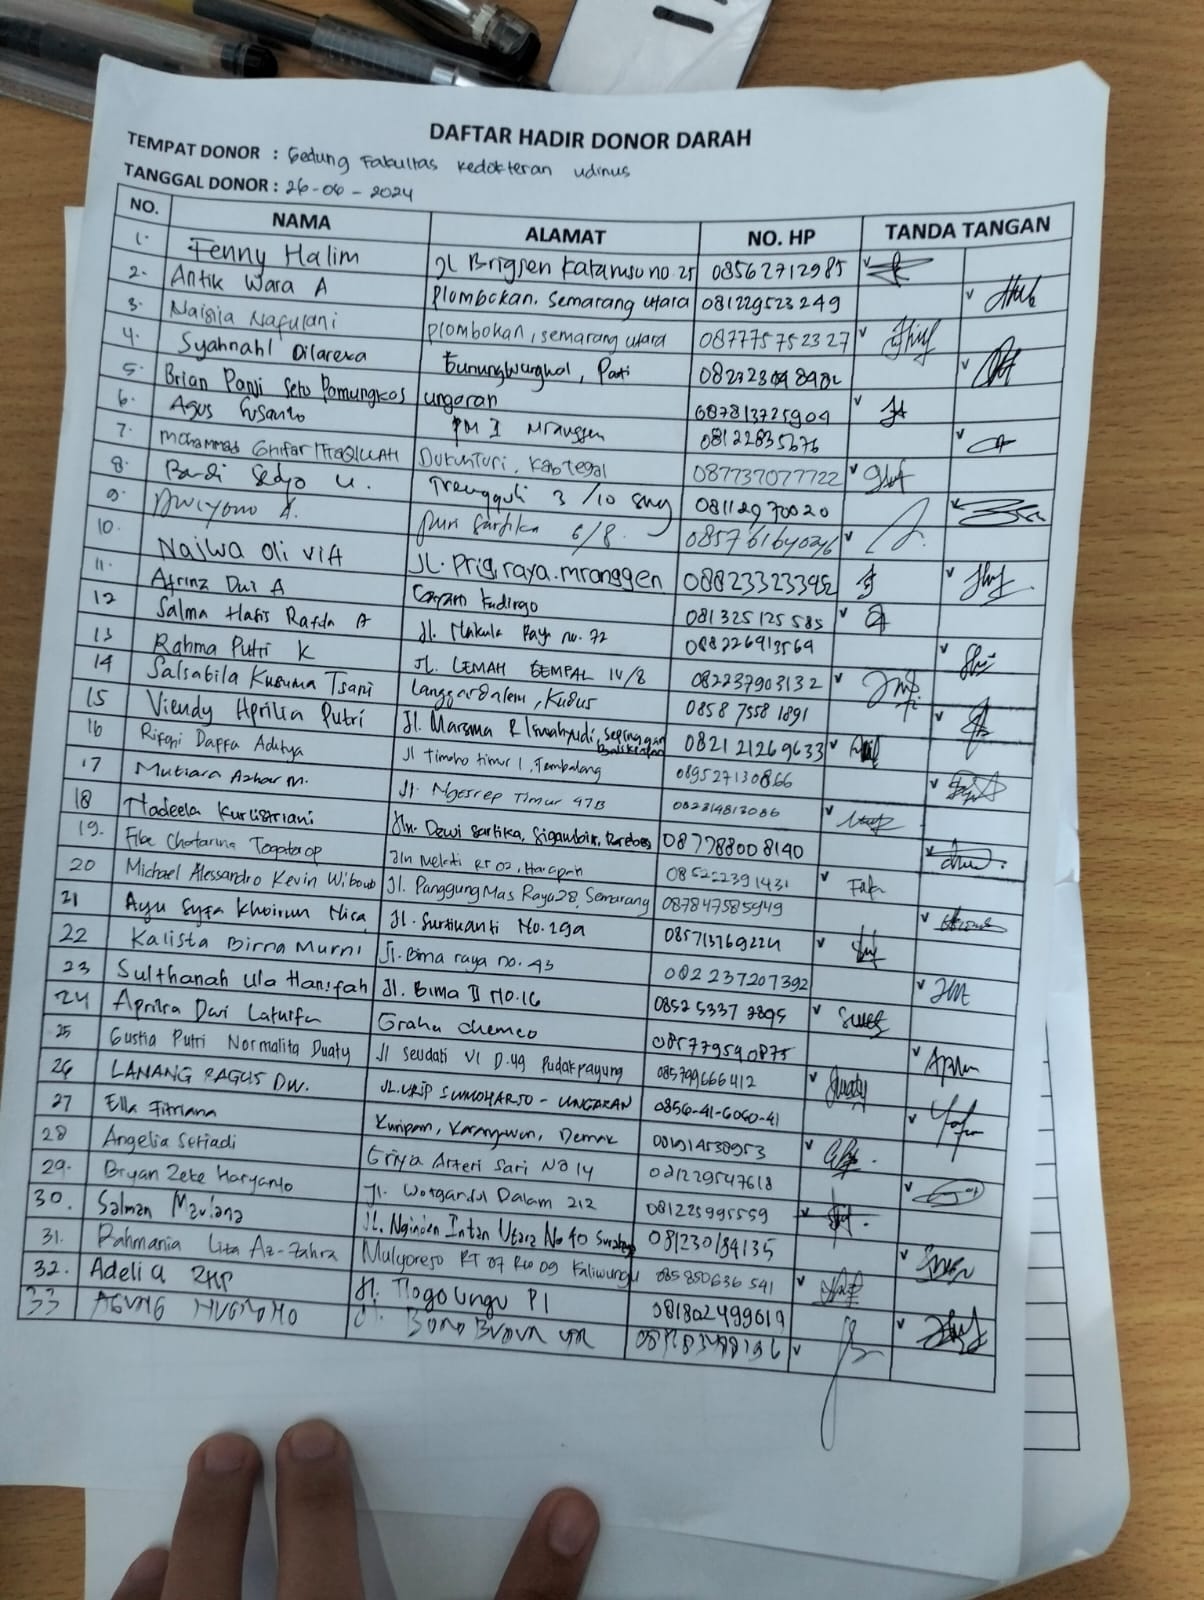 DAFTAR HADIR DONOR DARAH
TEMPAT DONOR : Gedung Fakultas Kedokteran Udinus
TANGGAL DONOR : 26-06-2024
NO. NAMA ALAMAT NO. HP TANDA TANGAN
1. Fenny Halim Jl Brigjen Katamso no. 25 08562712985
2. Antik Wara A Plombokan. Semarang utara 081229523249
3. Plombokan, semarang utara 087775752327
4. Syahnahl Dilareza Gunungwungkal, Pati
5. Brian Panji Seto Pamungkas ungaran 087813725904
6. Agus Susanto Mranggen 08122835676
7. Mohammad Ghifar Dukuhturi, Kab tegal 087737077722
8. Bardi Sedyo U. Trengguli 3 /10 smg 08112970020
9. Dwiyono A. puri sartika 6/8 085761640246
10. Najwa Olivia JL. Prig.raya.mranggen 088233233982
11. 081325125585
12 Salma Hafis Rafda A Jl. Makula Raya no. 72 088226913569
13 Rahma Putri K JL. LEMAH GEMPAL IV/8 082237903132
14 Salsabila Kusuma Tsani Langgardalem, Kudus 085875581891
15 Viendy Aprilia Putri 082121269633
16 Daffa Aditya Jl Timoho timur 1, Tembalang 089527130866
17 Mutiara Azhar M. Jl. Ngesrep Timur 47B 082314813086
18 Nadeela Kurlistriani Jln. Dewi Sartika, Sigambir, Brebes 087788008140
19. Jln Melati RT 02, Harapan 085252391431 Fab
20 Michael Alessandro Kevin Wibowo Jl. Panggung Mas Raya 28, Semarang 087847585949
21 Ayu Syfa Khoirun Nisa Jl. Surtikanti No. 19a 085713769224
22 Kalista Birna Murni Jl. Bima raya no. 43 082237207392
23 Sulthanah Ula Hanifah Jl. Bima II No.16 085253372895
24 Aprilia Dwi Latuifa Graha chemco 085779590875
25 Gustia Putri Normalita Duaty Jl Seudati VI D.49 Pudakpayung 085799666412
26 LANANG BAGUS DW. JL.URIP SUMOHARJO - UNGARAN 0856-41-6060-41
27 Ella Fitriana Kuripan, Karangawen, Demak 081914538953
28 Angelia Setiadi Griya Arteri Sari No 14 081229547618
29. Bryan Zeke Haryanto Jl. Wotgandul Dalam 212 081225995559
30. Salman Maulana JL. Nginden Intan Utara No 40 Surabaya 081230184135
31. Rahmania Lita Az-Zahra Mulyorejo RT 07 RW 09 Kaliwungu 085850636541
32. Adelia RHP Jl. Tlogo Ungu P1 081802499619
33 AGUNG NUGROHO